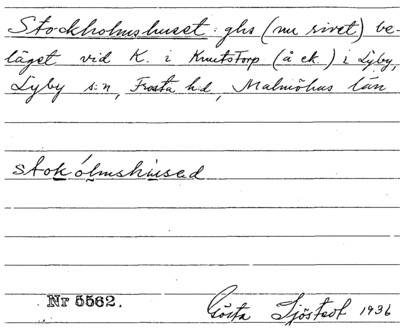 Stockholmshuset: ghs (nu rivet) be-
läget vid K. i Knutstorp (å ek.) i Lyby,
Lyby s:n, Frosta hd, Malmöhus län
stokólmshused
Nr 5562.
Gösta Sjöstedt 1936